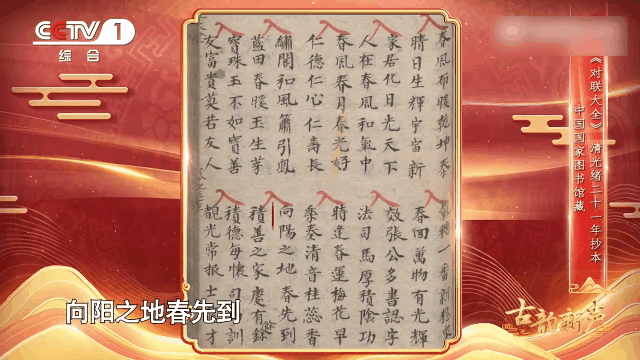 CCTV 1
综合
春風布暖乾坤泰
晴日生輝宇宙新
家居化日光天下
人在春風和氣中
春風春月春光好
仁德仁心仁壽長
繡閣和風簫引鳳
藍田春暖玉生芽
寶珠玉不如寶善
友富貴莫若友人
春回萬物有光輝
效張公多書認字
法司馬厚積陰功
時逢春運梅花早
樂奏清音桂蕊香
向陽之地春先到
積善之家慶有餘
積德每懷司訓
觀光常振士才
《对联大全》清光绪二十一年抄本
中国国家图书馆藏
向阳之地春先到
古韵新声